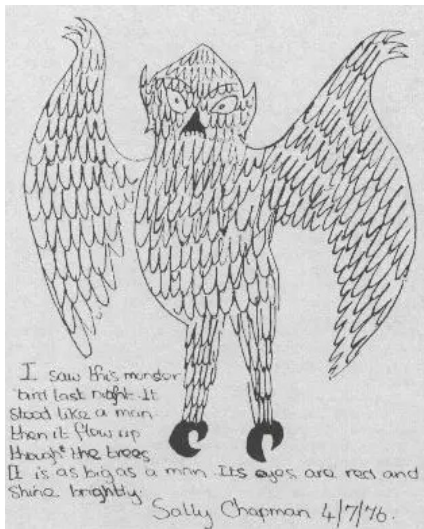 I saw this monster
bird last night. It
stood like a man
then it flew up
though the trees
It is as big as a man. Its eyes are red and
shine brightly.
Sally Chapman 4/7/76.